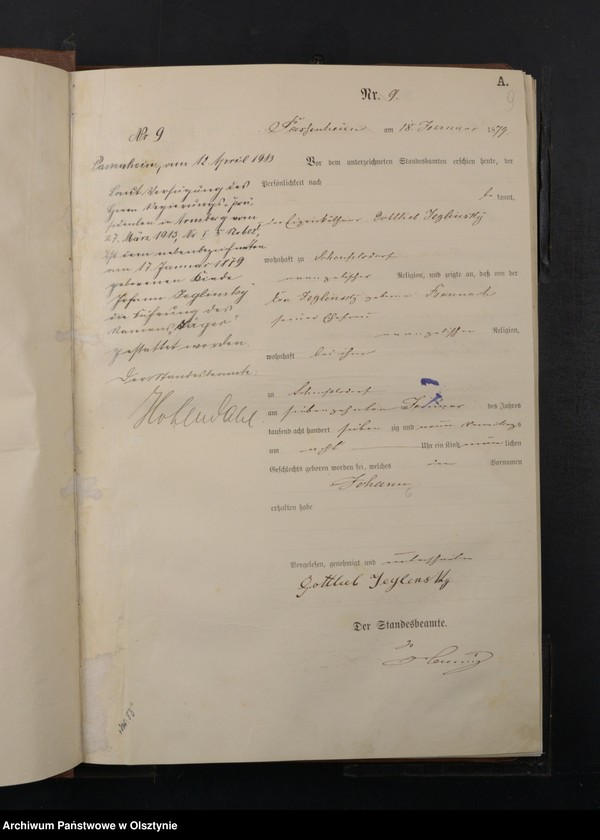 A.
Nr. 9.
9
Nr 9
Passenheim am 18. Januar 1879
Pannheim, am 12 April 1913
Laut Verfügung des
Herrn Regierungs-Prä-
sidenten in Arnsberg vom
27. März 1913,
ist dem nebenbezeichneten
am 17 Januar 1879
geborenen Kinde
Johann Jeglinsky
die Führung des
Namens "Jäger"
gestattet worden.
Der Standesbeamte:
Hohendahl
Vor dem unterzeichneten Standesbeamten erschien heute, der
Persönlichkeit nach
be kannt,
der Eigenkäthner Gottlieb Jeglinsky
wohnhaft zu
evangelischer Religion, und zeigte an, daß von der
Jeglinsky geborne
seiner Ehefrau
evangelischer Religion,
wohnhaft bei ihm
zu
am siebenzehnten Januar des Jahres
tausend acht hundert sieben zig und neun Vormittags
um acht Uhr ein Kind männlichen
Geschlechts geboren worden sei, welches den Vornamen
Johann
erhalten habe
Vorgelesen, genehmigt und unterschrieben
Gottlieb Jeglensky
Der Standesbeamte.
Archiwum Państwowe w Olsztynie